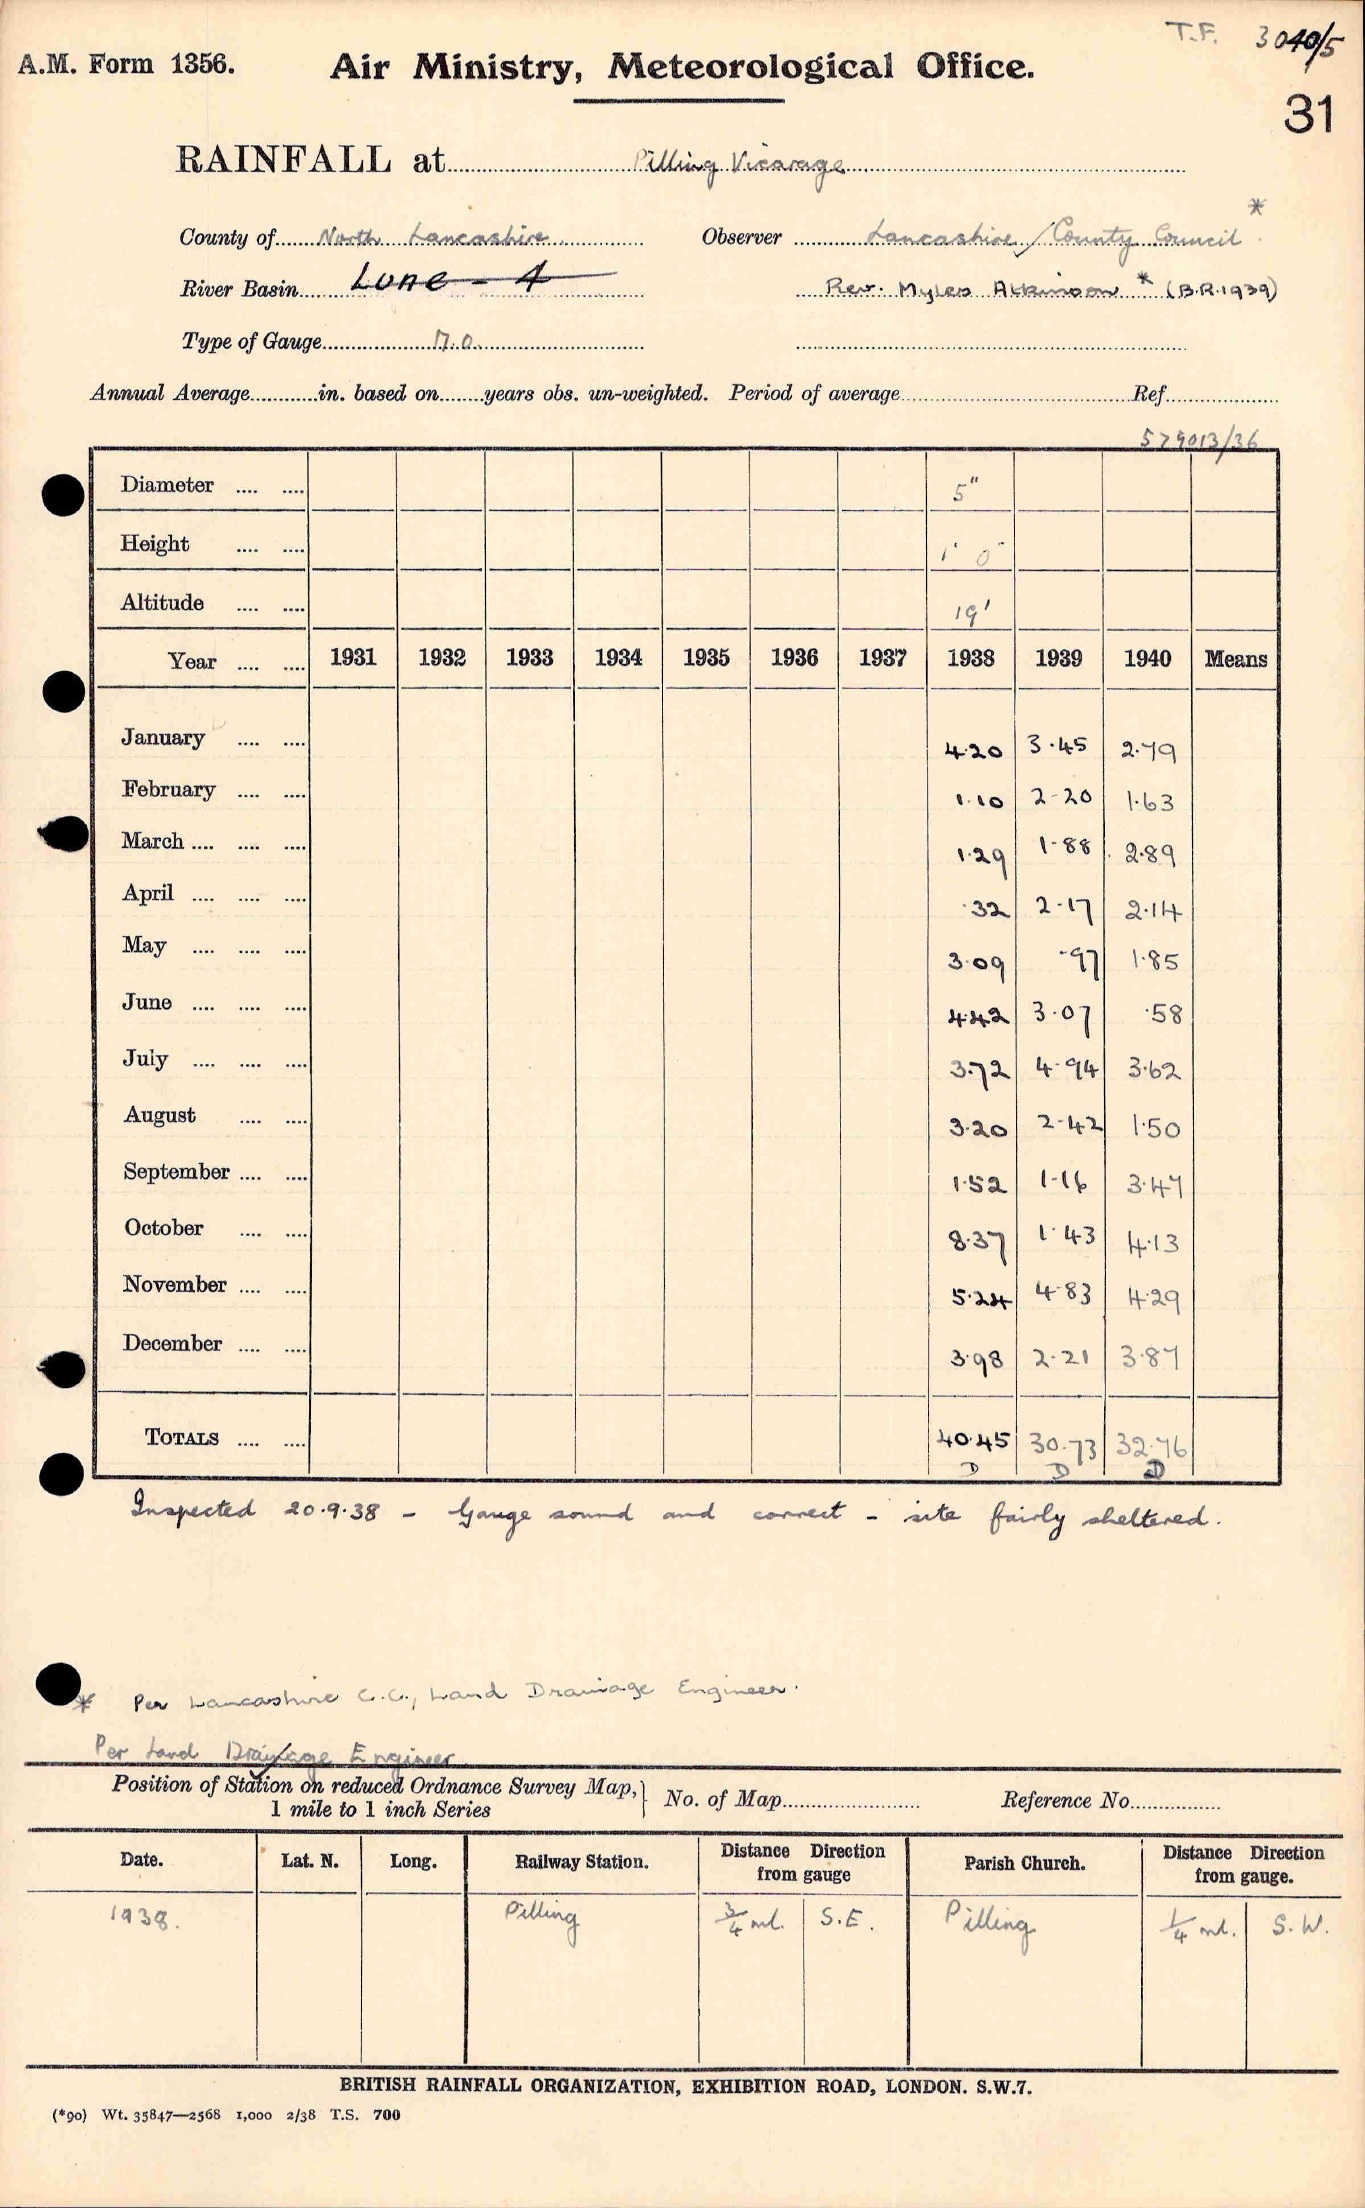 T.F. 3040/5
A.M. Form 1356. Air Ministry, Meteorological Office.
31
RAINFALL at Pilling Vicarage
County of North Lancashire Observer Lancashire County Council *
River Basin Lune - 4 Rev. Myles Atkinson * (B.R. 1939)
Type of Gauge M.O.
Annual Average in. based on years obs. un-weighted. Period of average Ref.
579013/36
Diameter .... .... 5"
Height .... .... 1' 0"
Altitude .... .... 19'
Year .... .... 1931 1932 1933 1934 1935 1936 1937 1938 1939 1940 Means
January .... .... 4.20 3.45 2.79
February .... .... 1.10 2.20 1.63
March .... .... .... 1.29 1.88 2.89
April .... .... .... .32 2.17 2.14
May .... .... .... 3.09 .97 1.85
June .... .... .... 4.42 3.07 .58
July .... .... .... 3.72 4.94 3.62
August .... .... 3.20 2.42 1.50
September .... .... 1.52 1.16 3.47
October .... .... 8.37 1.43 4.13
November .... .... 5.24 4.83 4.29
December .... .... 3.98 2.21 3.87
TOTALS .... .... 40.45 30.73 32.76
D D D
Inspected 20.9.38 - Gauge sound and correct - site fairly sheltered.
* Per Lancashire C.C., Land Drainage Engineer.
Per Land Drainage Engineer
Position of Station on reduced Ordnance Survey Map, 1 mile to 1 inch Series } No. of Map Reference No.
Date. Lat. N. Long. Railway Station. Distance Direction from gauge Parish Church. Distance Direction from gauge.
1938. Pilling 3/4 ml. S.E. Pilling 1/4 ml. S.W.
BRITISH RAINFALL ORGANIZATION, EXHIBITION ROAD, LONDON. S.W.7.
(*90) Wt. 35847—2568 1,000 2/38 T.S. 700